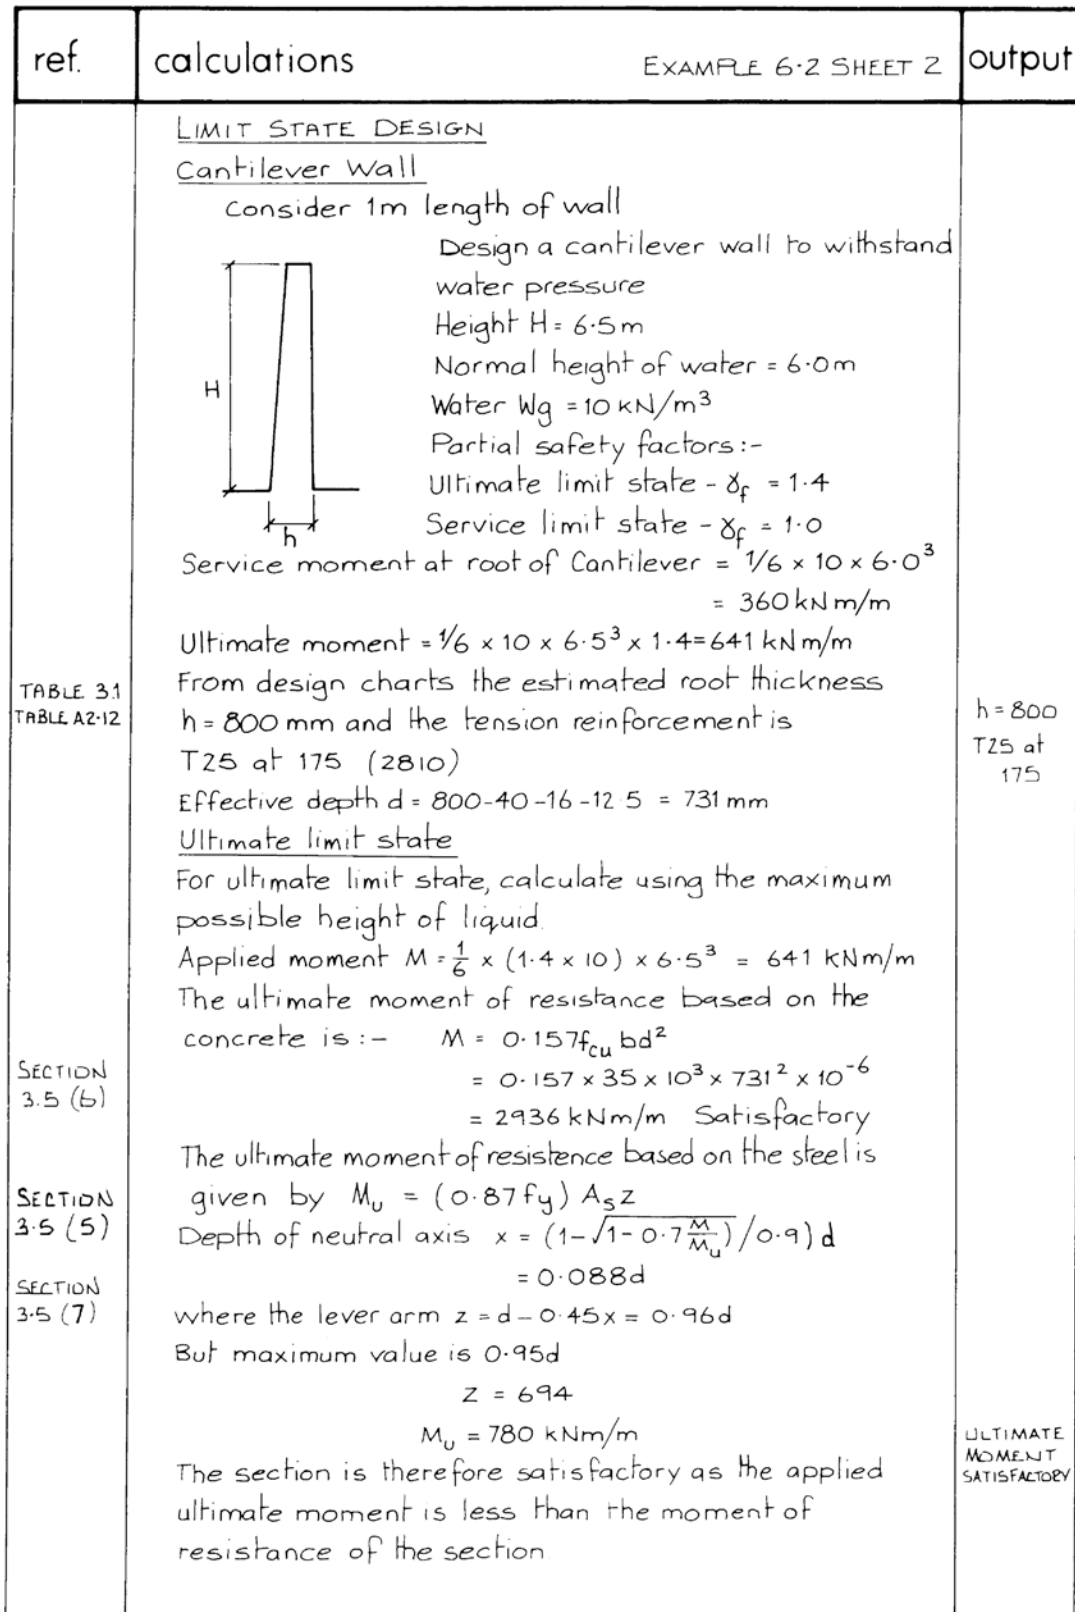 ref.
calculations
EXAMPLE 6·2 SHEET 2
output
LIMIT STATE DESIGN
Cantilever Wall
Consider 1m length of wall
Design a cantilever wall to withstand
water pressure
Height H = 6·5m
Normal height of water = 6·0m
H
Water Wg = 10 kN/m³
Partial safety factors:-
Ultimate limit state - γf = 1·4
Service limit state - γf = 1·0
h
Service moment at root of Cantilever = 1/6 × 10 × 6·0³
= 360 kN m/m
Ultimate moment = 1/6 × 10 × 6·5³ × 1·4 = 641 kN m/m
TABLE 3.1
TABLE A2·12
From design charts the estimated root thickness
h = 800 mm and the tension reinforcement is
T25 at 175 (2810)
h = 800
T25 at
175
Effective depth d = 800-40-16-12 5 = 731 mm
Ultimate limit state
For ultimate limit state, calculate using the maximum
possible height of liquid.
Applied moment M = 1/6 × (1·4 × 10) × 6·5³ = 641 kNm/m
The ultimate moment of resistance based on the
concrete is :- M = 0·157fcu bd²
SECTION
3.5 (6)
= 0·157 × 35 × 10³ × 731² × 10⁻⁶
= 2936 kNm/m Satisfactory
The ultimate moment of resistence based on the steel is
SECTION
3·5 (5)
given by Mu = (0·87 fy) As z
Depth of neutral axis x = (1-√(1-0·7 M/Mu)/0·9) d
= 0·088d
SECTION
3·5 (7)
where the lever arm z = d - 0·45x = 0·96d
But maximum value is 0·95d
Z = 694
Mu = 780 kNm/m
ULTIMATE
MOMENT
SATISFACTORY
The section is therefore satisfactory as the applied
ultimate moment is less than the moment of
resistance of the section